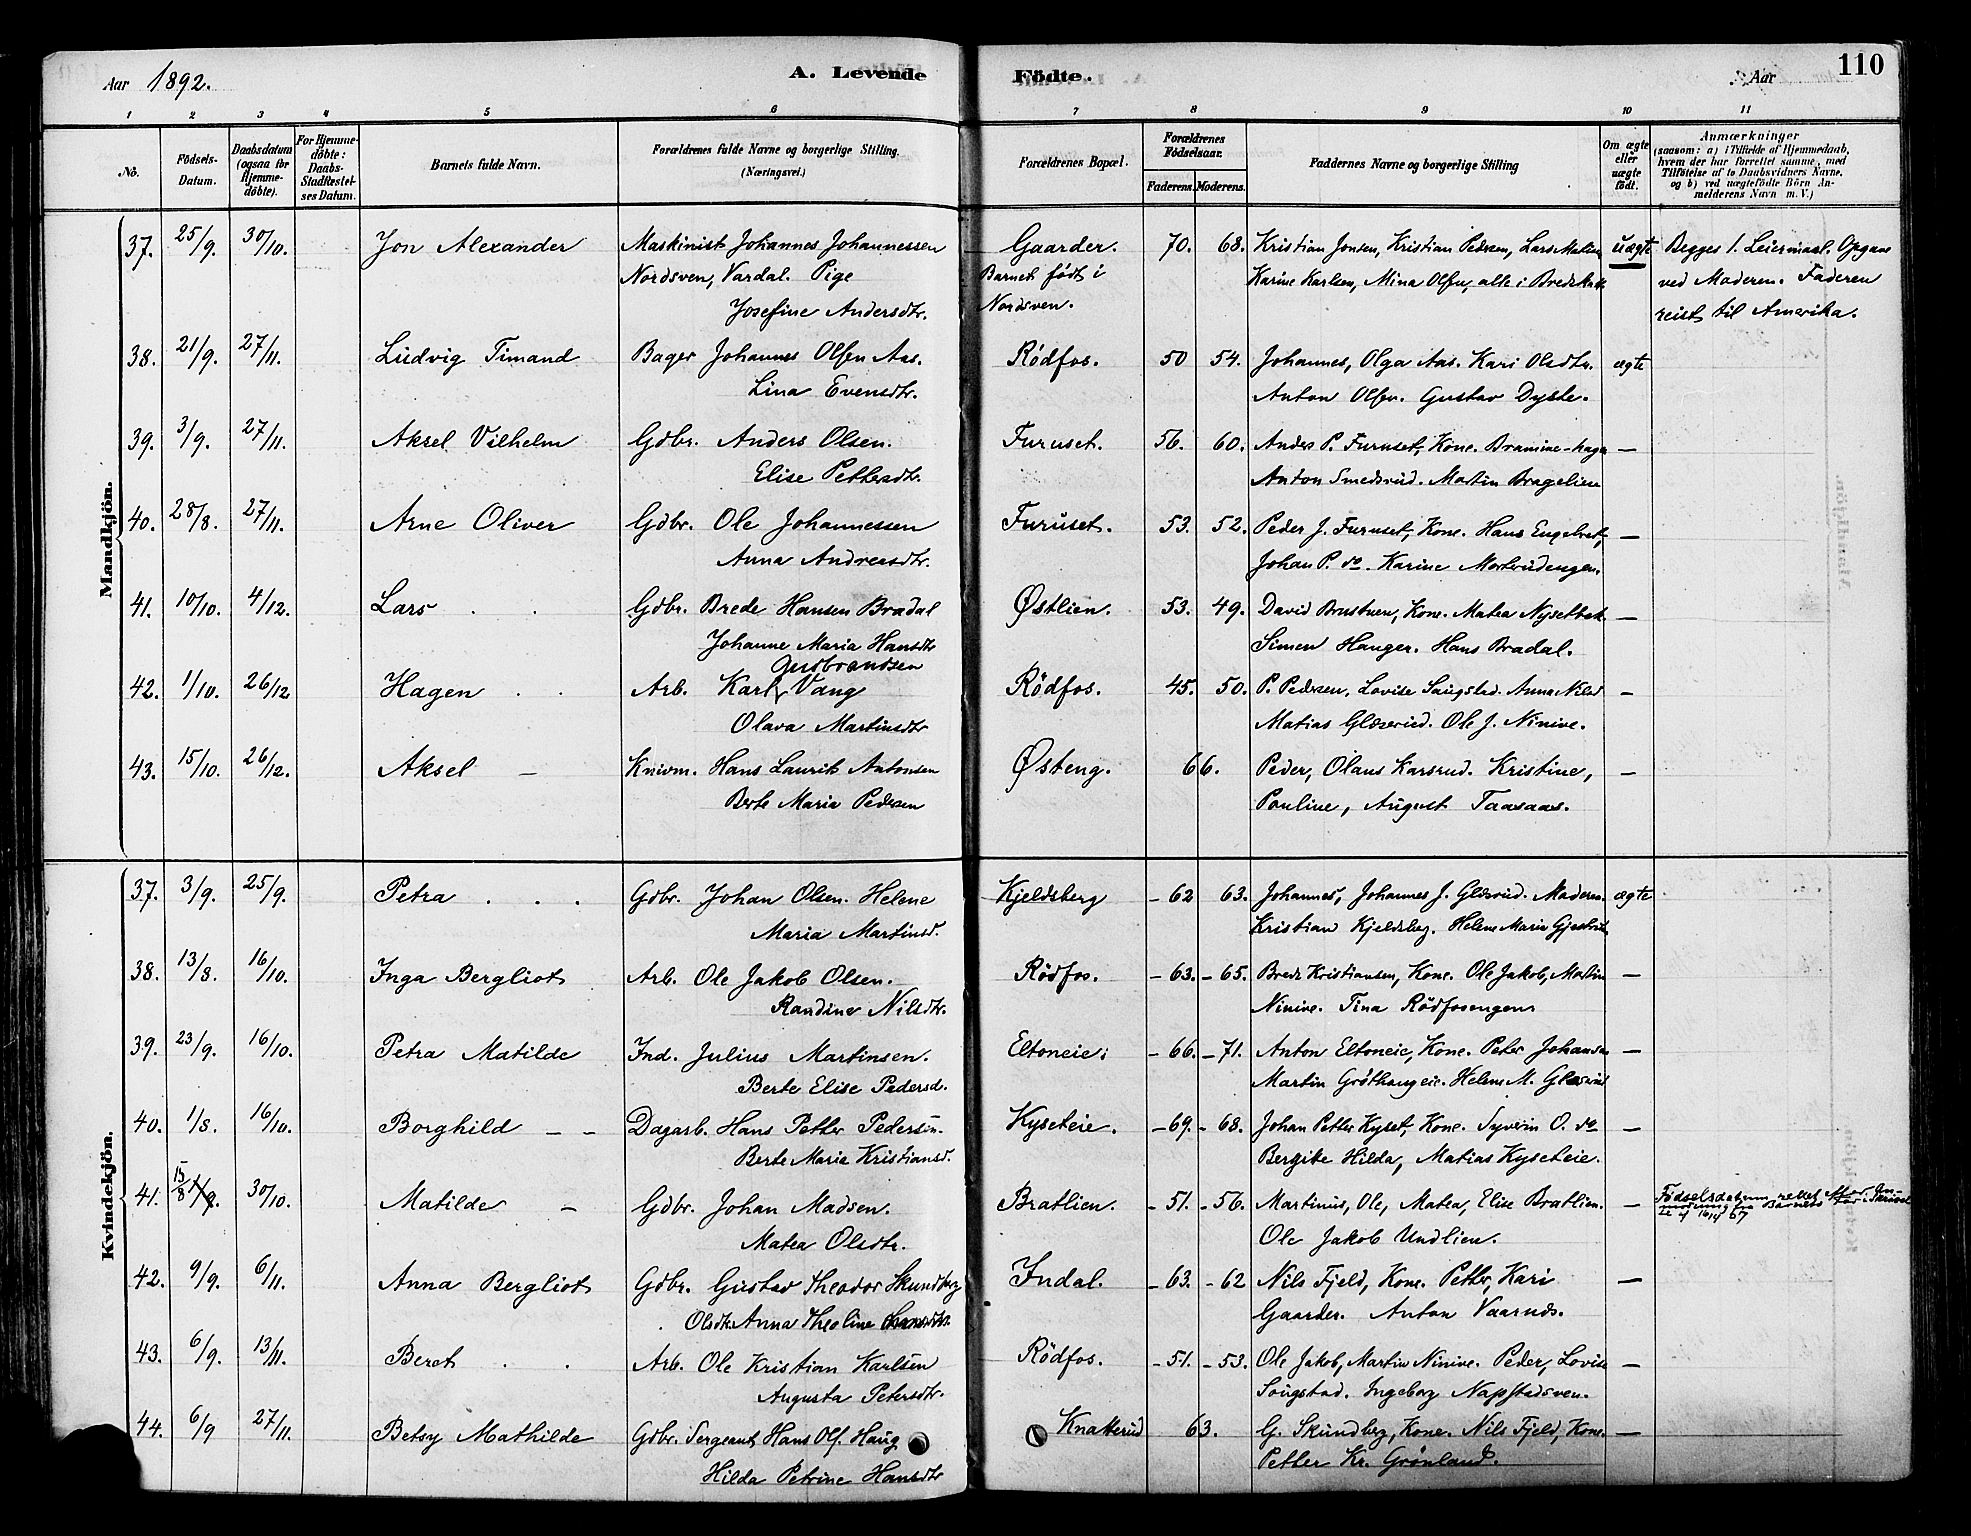 Aar 1892. A. Levende Födte. Aar 110
1 2 3 4 5 6 7 8 9 10 11
No. Födsels-Datum. Daabsdatum (ogsaa for Hjemme-döbte). For Hjemme-döbte: Daabs-Stadfæstel-ses Datum. Barnets fulde Navn. Forældrenes fulde Navne og borgerlige Stilling. (Næringsvei.) Forældrenes Bopæl. Forældrenes Födselsaar. Faderens. Moderens. Faddernes Navne og borgerlige Stilling Om ægte eller uægte födt. Anmærkninger (saasom: a) i Tilfælde af Hjemmedaab, hvem der har forrettet samme, med Tilföielse af to Daabsvidners Navne, og b) ved uægtefödte Börn An-melderens Navn m. V.)
Mandkjön.
37. 25/9. 30/10. Jon Alexander Maskinist Johannes Johannessen Gaarder. 70. 68. Kristian Jonsen, Kristian Pedersen, Lars uægte Begges 1. Leiermaal. Opgave
Nordsven, Vardal. Pige Barnet födt i Karine Karlsen, Mina Olsen, alle i ved Moderen. Faderen
Josefine Andersdtr. Nordsven. reist til Amerika.
38. 21/9. 27/11. Ludvig Timand Bager Johannes Olsen Aas. Rödfos. 50 54. Johannes, Olga Aas. Kari Olsdtr. ægte
Lina Evensdtr. Anton Olsen. Gustav Dyste.
39. 3/9. 27/11. Aksel Vilhelm Gdbr. Anders Olsen. Furuset. 56. 60. Anders P. Furuset, Kone. —
Elise Pettersdtr. Anton Smedsrud. Martin Bragelien
40. 28/8. 27/11. Arne Oliver Gdbr. Ole Johannessen Furuset. 53. 52. Peder J. Furuset, Kone. Hans —
Anna Andreasdtr. Johan P. do. Karine
41. 10/10. 4/12. Lars . . Gdbr. Brede Hansen Bradal Østlien. 53. 49. David Brustuen, Kone. Matea —
Johanne Maria Hansdtr Simen Hauger. Hans Bradal.
Gudbrandsen
42. 1/10. 26/12 Hagen . . Arb. Karl Vang Rödfos. 45. 50. P. Pedersen, Lovise Saugstad. Anna —
Olava Martinsdtr Matias Glæserud. Ole J. Ninive.
43. 15/10. 26/12. Aksel — Knivm. Hans Laurits Antonsen Østeng. 66. Peder, Olaus Karsrud. Kristine, —
Berte Maria Pedersen Pauline, August Taasaas.
Kvindekjön.
37. 3/9. 25/9. Petra . . . Gdbr. Johan Olsen. Helene Kjeldsberg – 62 63. Johannes, Johannes J. Glæsrud. Moderen. ægte
Maria Martinsd. Kristian Kjeldsberg. Helene Maria
38. 13/8. 16/10. Inga Bergliot Arb. Ole Jakob Olsen. Rödfos. – 63. – 65. Brede Kristiansen, Kone. Ole Jakob, Martin —
Randine Nilsdtr. Ninive. Tina Rödfosengen
39. 23/9. 16/10. Petra Matilde Ind. Julius Martinsen. Eltoneie. – 66. – 71. Anton Eltoneie, Kone. Peter Johansen —
Berte Elise Pedersd. Martin Gröthaugeie. Helene M. Glæsrud
40. 1/8. 16/10. Borghild – – Dagarb. Hans Petter Pedersen. Kyseteie. – 69. – 68. Johan Petter Kyset, Kone. Syverin O. do —
Berte Maria Kristiansd. Bergite Hilda, Matias Kyseteie.
41. 15/8 1/9. 30/10. Matilde – Gdbr. Johan Madsen. Bratlien. – 51. – 56. Martinus, Ole, Matea, Elise Bratlien. — Födselsdatum rettet
Matea Olsdtr. Ole Jakob Undlien.
42. 9/9. 6/11. Anna Bergliot Gdbr. Gustav Theodor Skundberg Indal. – 63. – 62 Nils Fjeld, Kone. Petter, Kari —
Olsdtr. Anna Theoline Gaarder. Anton Vaarnds.
43. 6/9. 13/11. Beret . . Arb. Ole Kristian Karlsen Rödfos. – 51. – 53. Ole Jakob, Martin Ninive. Peder, Lovise —
Augusta Petersdtr. Saugstad. Ingeborg Napstadsven.
44. 6/9 27/11. Betsy Mathilde Gdbr. Sergeant Hans Olf. Haug Knatterud 63. G. Skundberg, Kone. Nils Fjeld, Kone. —
Hilda Petrine Hansdtr Petter Kr. Grönland.